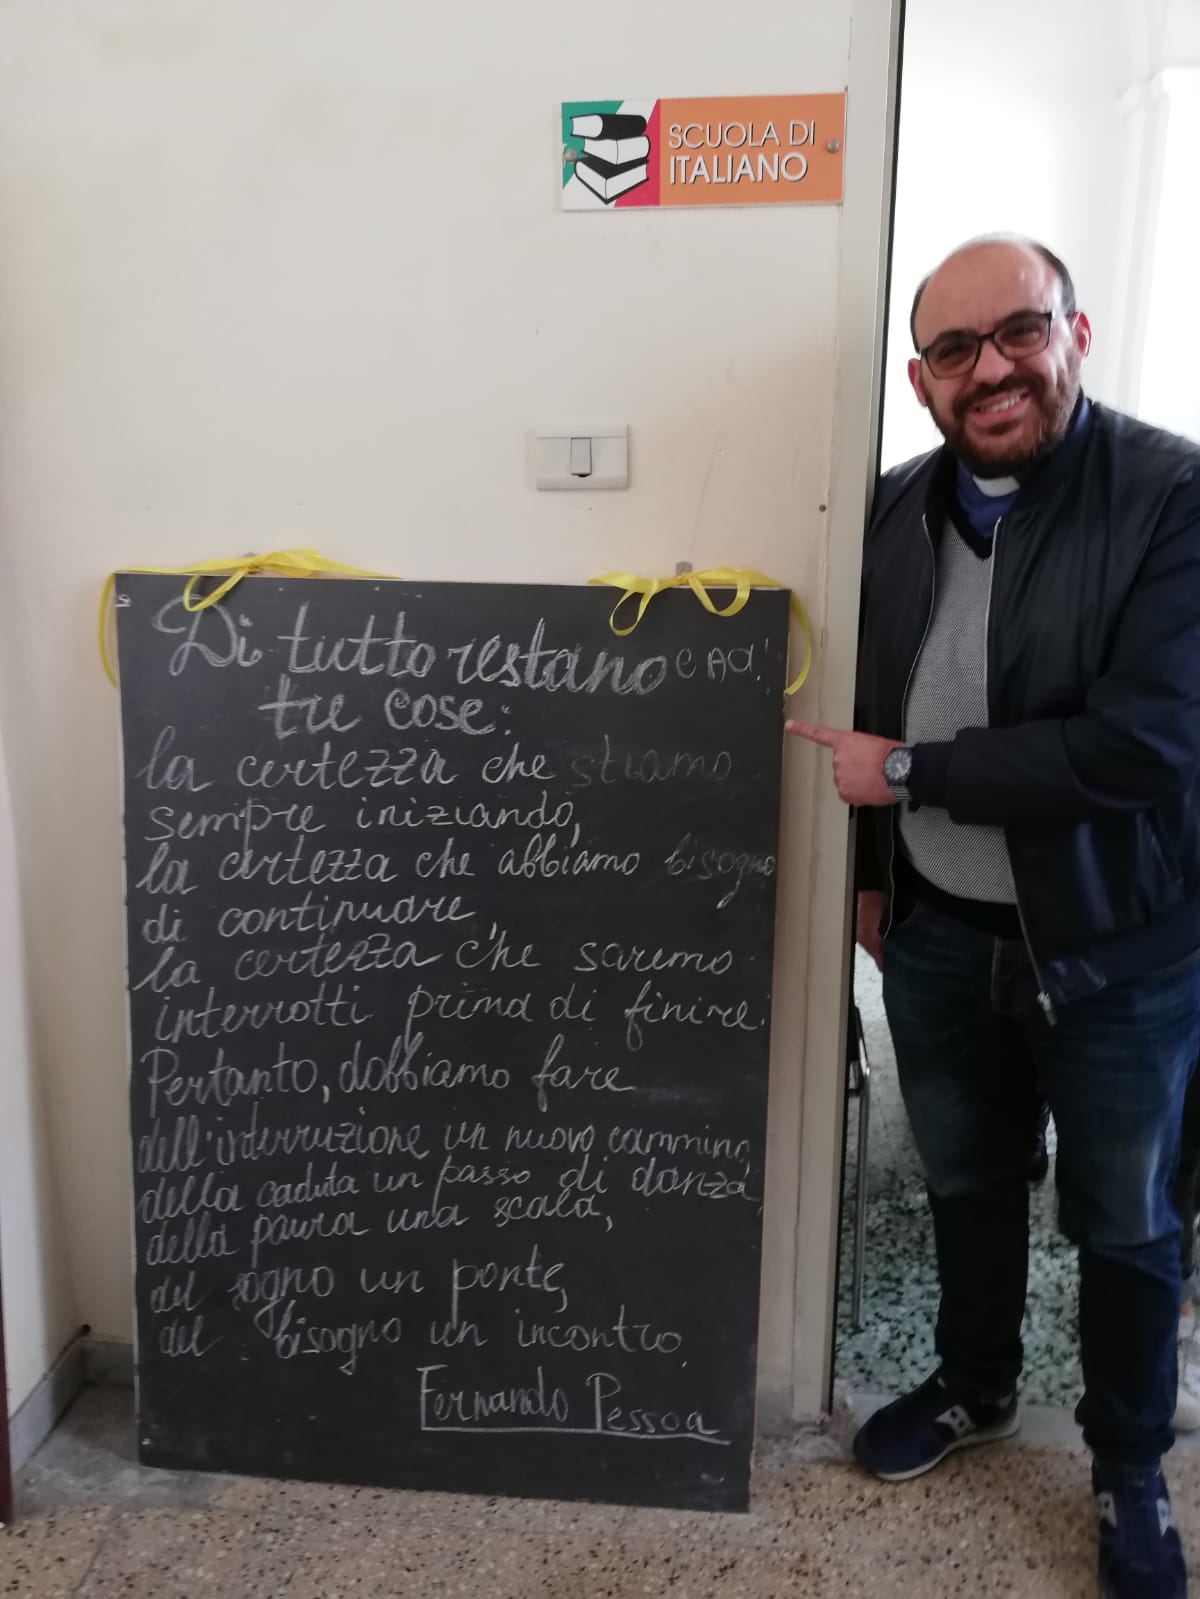 SCUOLA DI
ITALIANO
Di tutto restano
tre cose:
la certezza che stiamo
sempre iniziando,
la certezza che abbiamo bisogno
di continuare,
la certezza che saremo
interrotti prima di finire.
Pertanto, dobbiamo fare
dell'interruzione un nuovo cammino,
della caduta un passo di danza,
della paura una scala,
del sogno un ponte,
del bisogno un incontro.
Fernando Pessoa